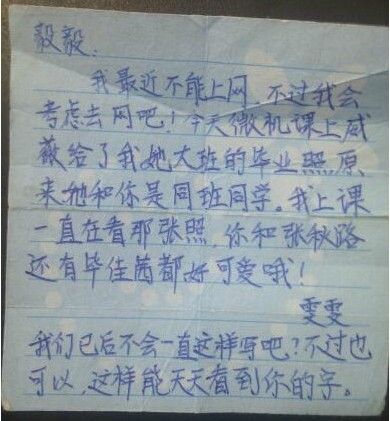 毅毅:
我最近不能上网,不过我会
考虑去网吧!今天微机课上威
薇给了我她大班的毕业照原
来她和你是同班同学。我上课
一直在看那张照,你和张秋路
还有毕佳茜都好可爱哦!
雯雯
我们已后不会一直这样写吧?不过也
可以,这样能天天看到你的字。